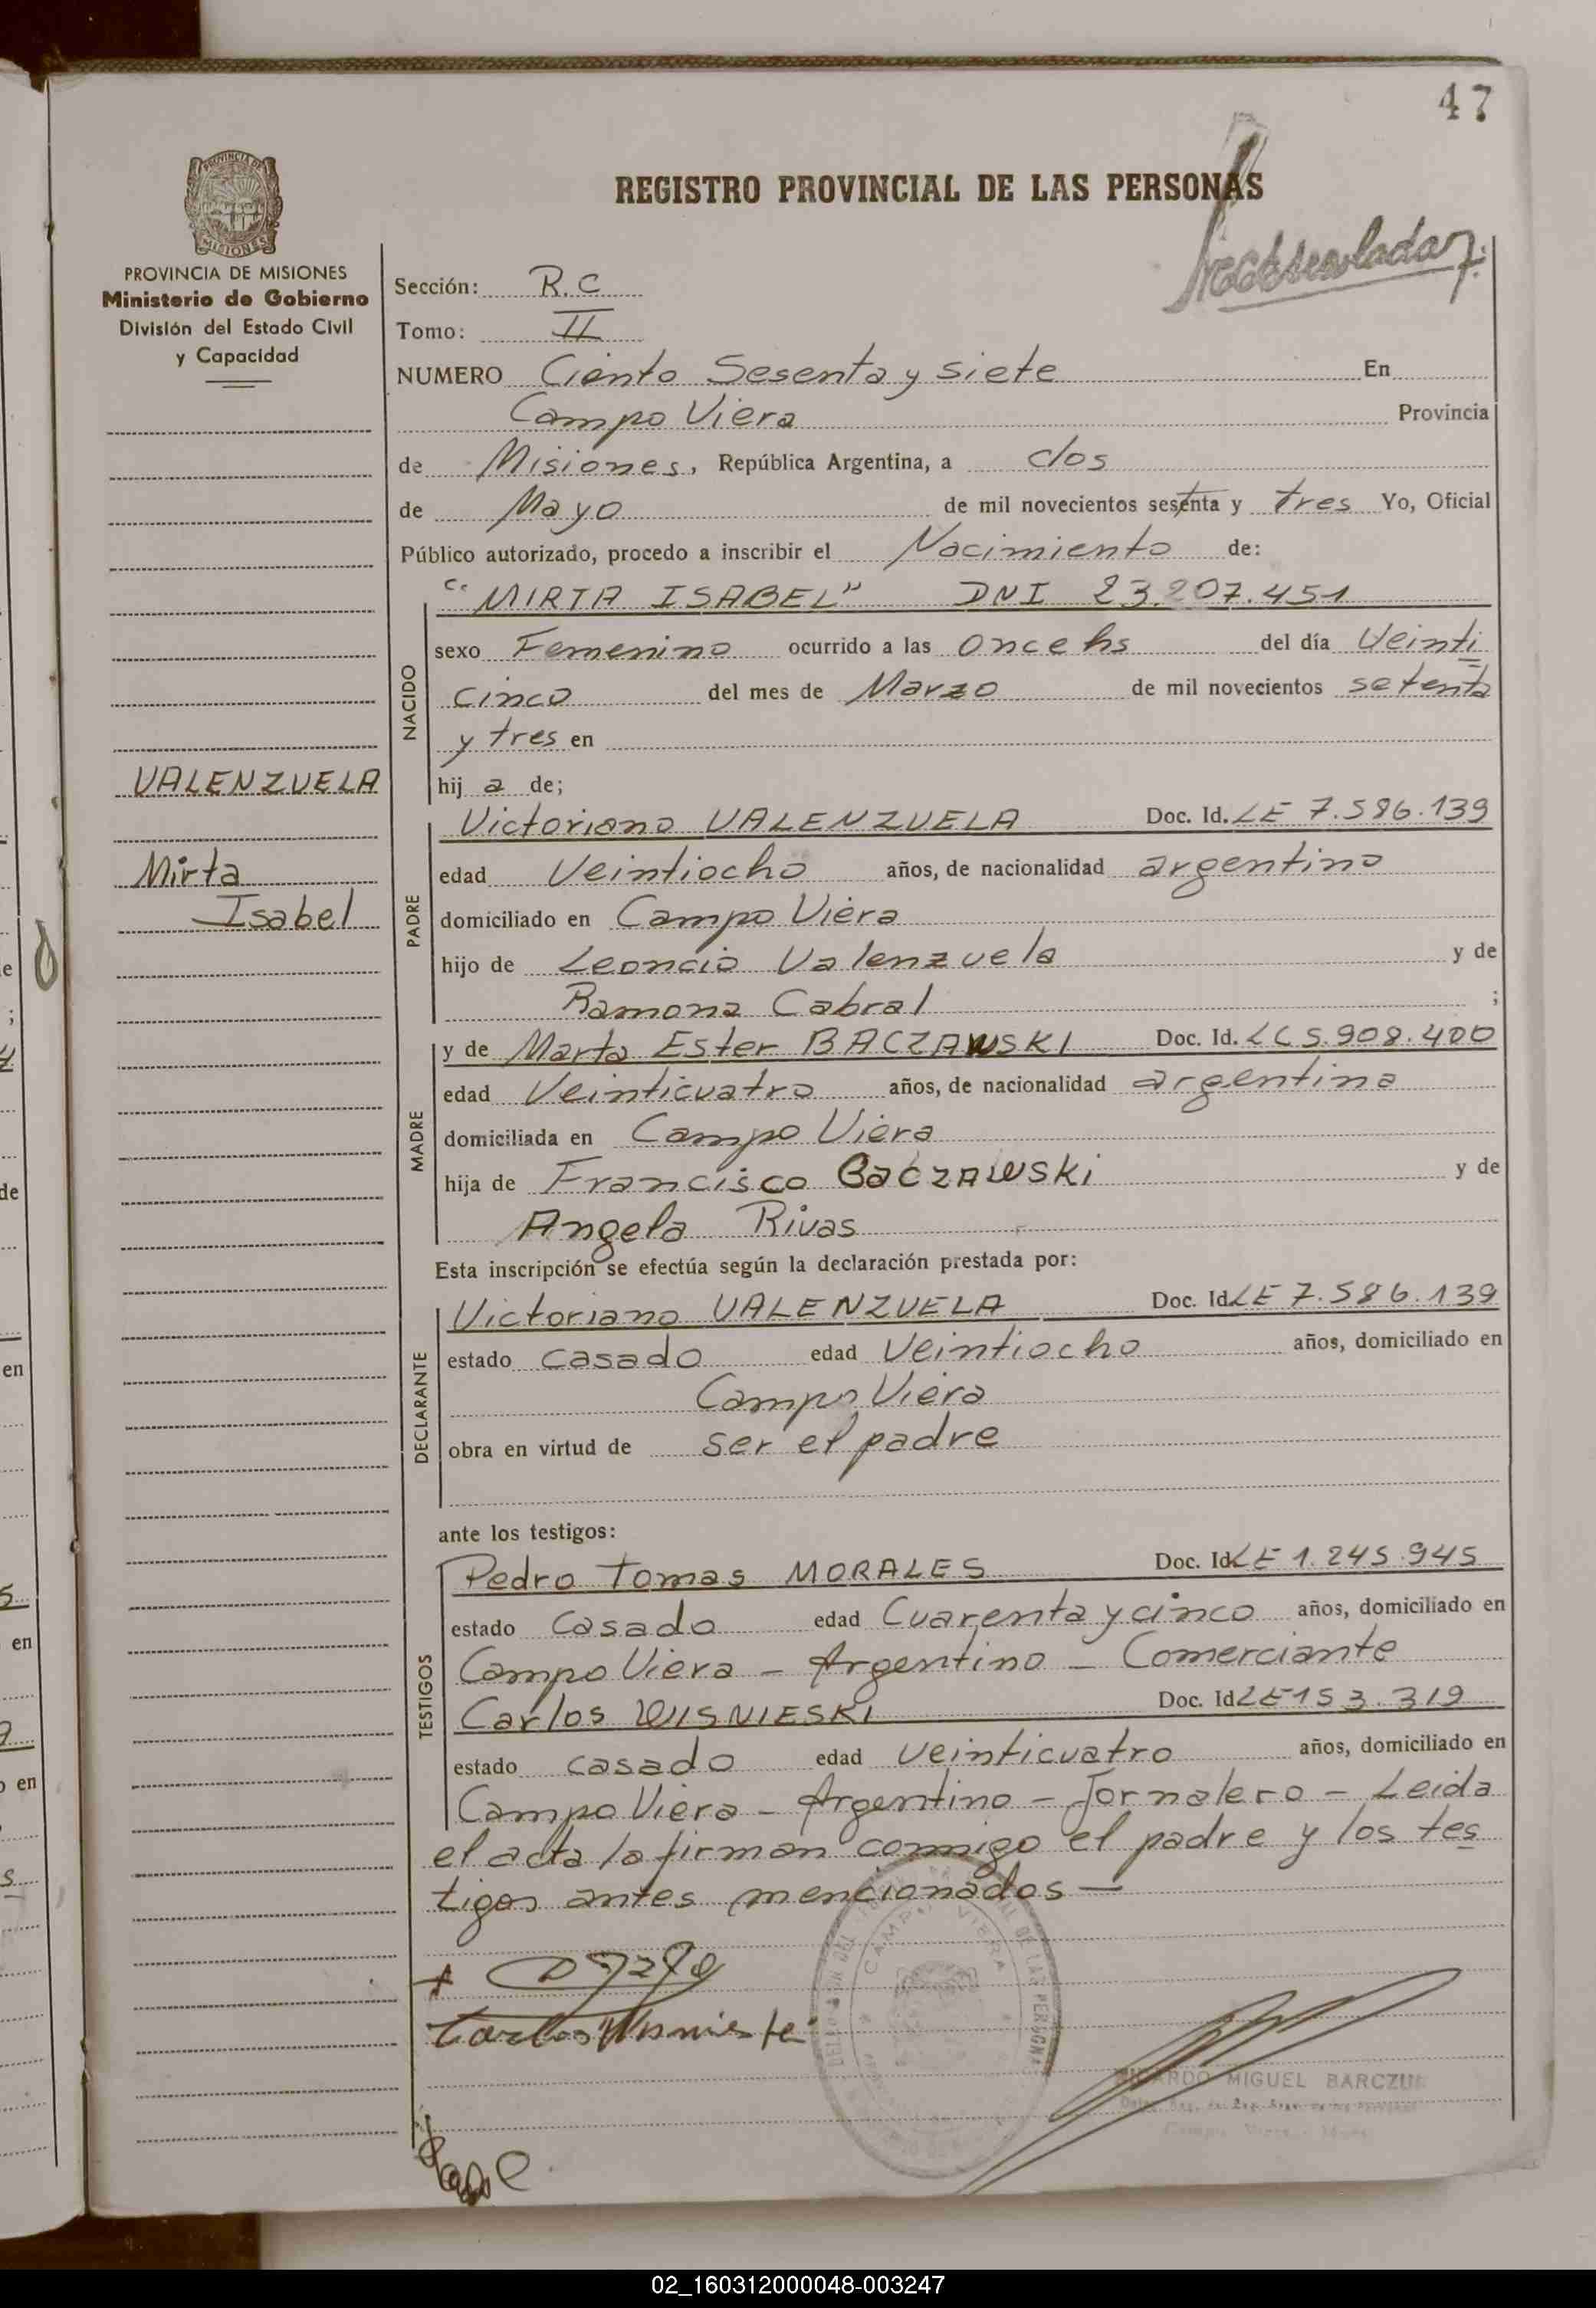 47
REGISTRO PROVINCIAL DE LAS PERSONAS
PROVINCIA DE MISIONES
Ministerio de Gobierno
División del Estado Civil
y Capacidad
Sección: R.C
Tomo: II
NUMERO Ciento Sesenta y siete En
Campo Viera Provincia
de Misiones, República Argentina, a dos
de Mayo de mil novecientos sesenta y tres Yo, Oficial
Público autorizado, procedo a inscribir el Nacimiento de:
"MIRTA ISABEL" DNI 23.207.451
NACIDO
sexo Femenino ocurrido a las once hs del día Veinti
cinco del mes de Marzo de mil novecientos setenta
y tres en
hij a de;
VALENZUELA
Mirta
Isabel
Victoriano VALENZUELA Doc. Id. LE 7.586.139
PADRE
edad Veintiocho años, de nacionalidad argentino
domiciliado en Campo Viera
hijo de Leoncio Valenzuela y de
Ramona Cabral ;
y de Marta Ester BACZAWSKI Doc. Id. LC 5.908.400
MADRE
edad Veinticuatro años, de nacionalidad argentina
domiciliada en Campo Viera
hija de Francisco BaCZAWSKi y de
Angela Rivas
Esta inscripción se efectúa según la declaración prestada por:
Victoriano VALENZUELA Doc. Id LE 7.586.139
DECLARANTE
estado casado edad Veintiocho años, domiciliado en
Campo Viera
obra en virtud de ser el padre
ante los testigos:
Pedro Tomas MORALES Doc. Id LE 1.245.945
TESTIGOS
estado casado edad Cuarenta y cinco años, domiciliado en
Campo Viera - Argentino - Comerciante
Carlos WISNIESKI Doc. Id LE 153.319
estado casado edad veinticuatro años, domiciliado en
Campo Viera - Argentino - Jornalero - Leida
el acta la firman conmigo el padre y los tes
tigos antes mencionados —
CAMPO VIERA
MIGUEL BARCZUK
02_160312000048-003247